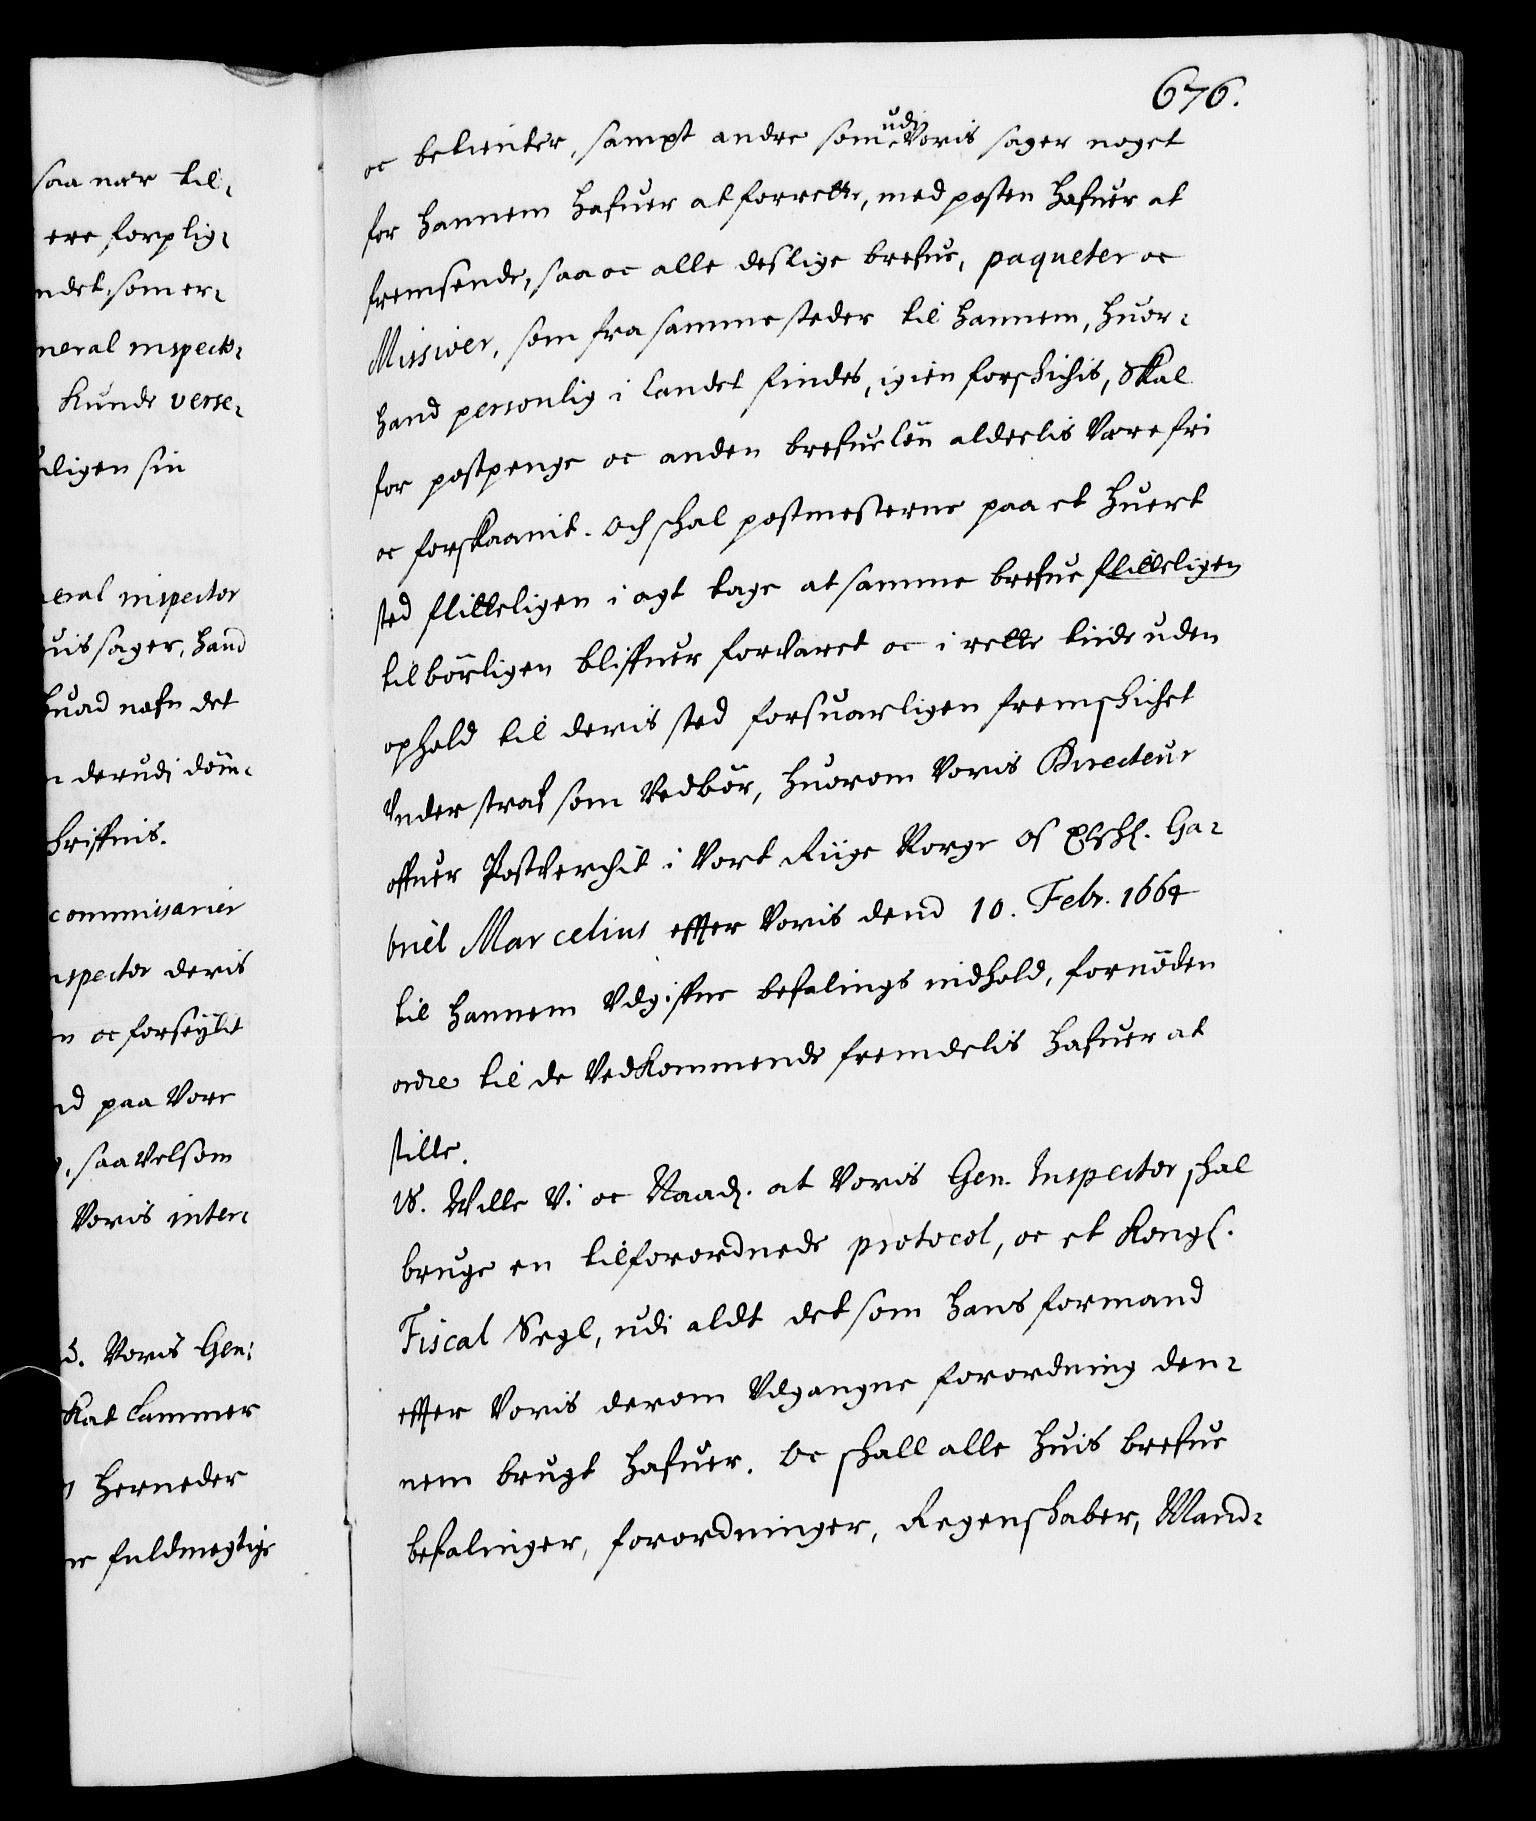 saa nær til¬
ere forplig¬
ndet, som er¬
neral inspect¬
kunde verse¬
ligen sin
eral inspector
uis sager, hand
huad nafn det
derudj döm¬
krifftis.
commissarier
nspector deris
n oc forseylit
nd paa Vore
, saa velsom
Voris inter¬
d. Voris Gen:
kat Cammer
herneder
fuldmegtige
676.
oc betienter, sampt andre som udj Voris sager noget
for hannem hafuer at forrette, med posten hafuer at
fremsende, saa oc alle deslige brefue, paqueter oc
Missiver, som fra samme steder til hannem, huor¬
hand personlig i landet findes, igien forskickis, skal
for postpenge oc anden brefuelön alderlis Være fri
oc forskaanit. Och skal postmesterne paa et huert
sted flitteligen i agt tage at samme brefue flitteligen
tilbörligen bliffuer forvaret oc i rette tiide uden
ophold til deris sted forsuarligen fremskicket
Vnder straf som Vedbör, huorom Voris Directeur
offuer Postverchit i Vort Riige Norge Os Elskl. Ga¬
briel Marcelius effter Voris dend 10. Febr. 1664
til hannem Vdgiffne befalings indhold, fornöden
ordre til de Vedkommende fremdelis hafuer at
stille.
18. Wille Vi oc Naad. at Voris Gen. Inspector skal
bruge en tilforordnede protocol, oc et Kongl.
Fiscal Segl, udi aldt det som hans formand
effter Voris derom Vdgangne forordning den¬
nem brugt hafuer. Oc skall alle huis brefue
befalinger, forordninger, Regenskaber, Mand¬